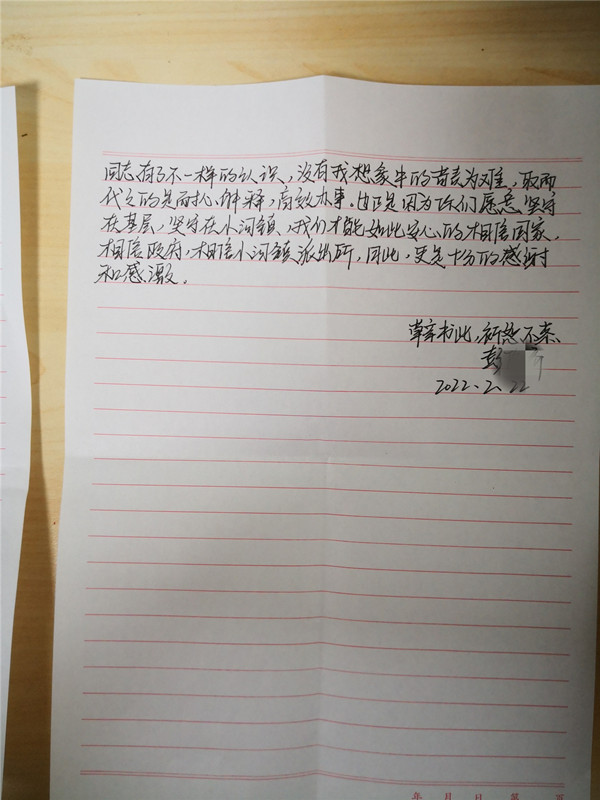 同志有了不一样的认识，没有我想象中的苛责为难，取而
代之的是耐心解释，高效办事。也正是因为你们愿意坚守
在基层，坚守在小河镇，我们才能如此安心的相信国家，
相信政府，相信小河镇派出所，因此，更是十分的感谢
和感激。
草率书此，祈恕不恭
彭
2022.2.22
年 月 日 第 页